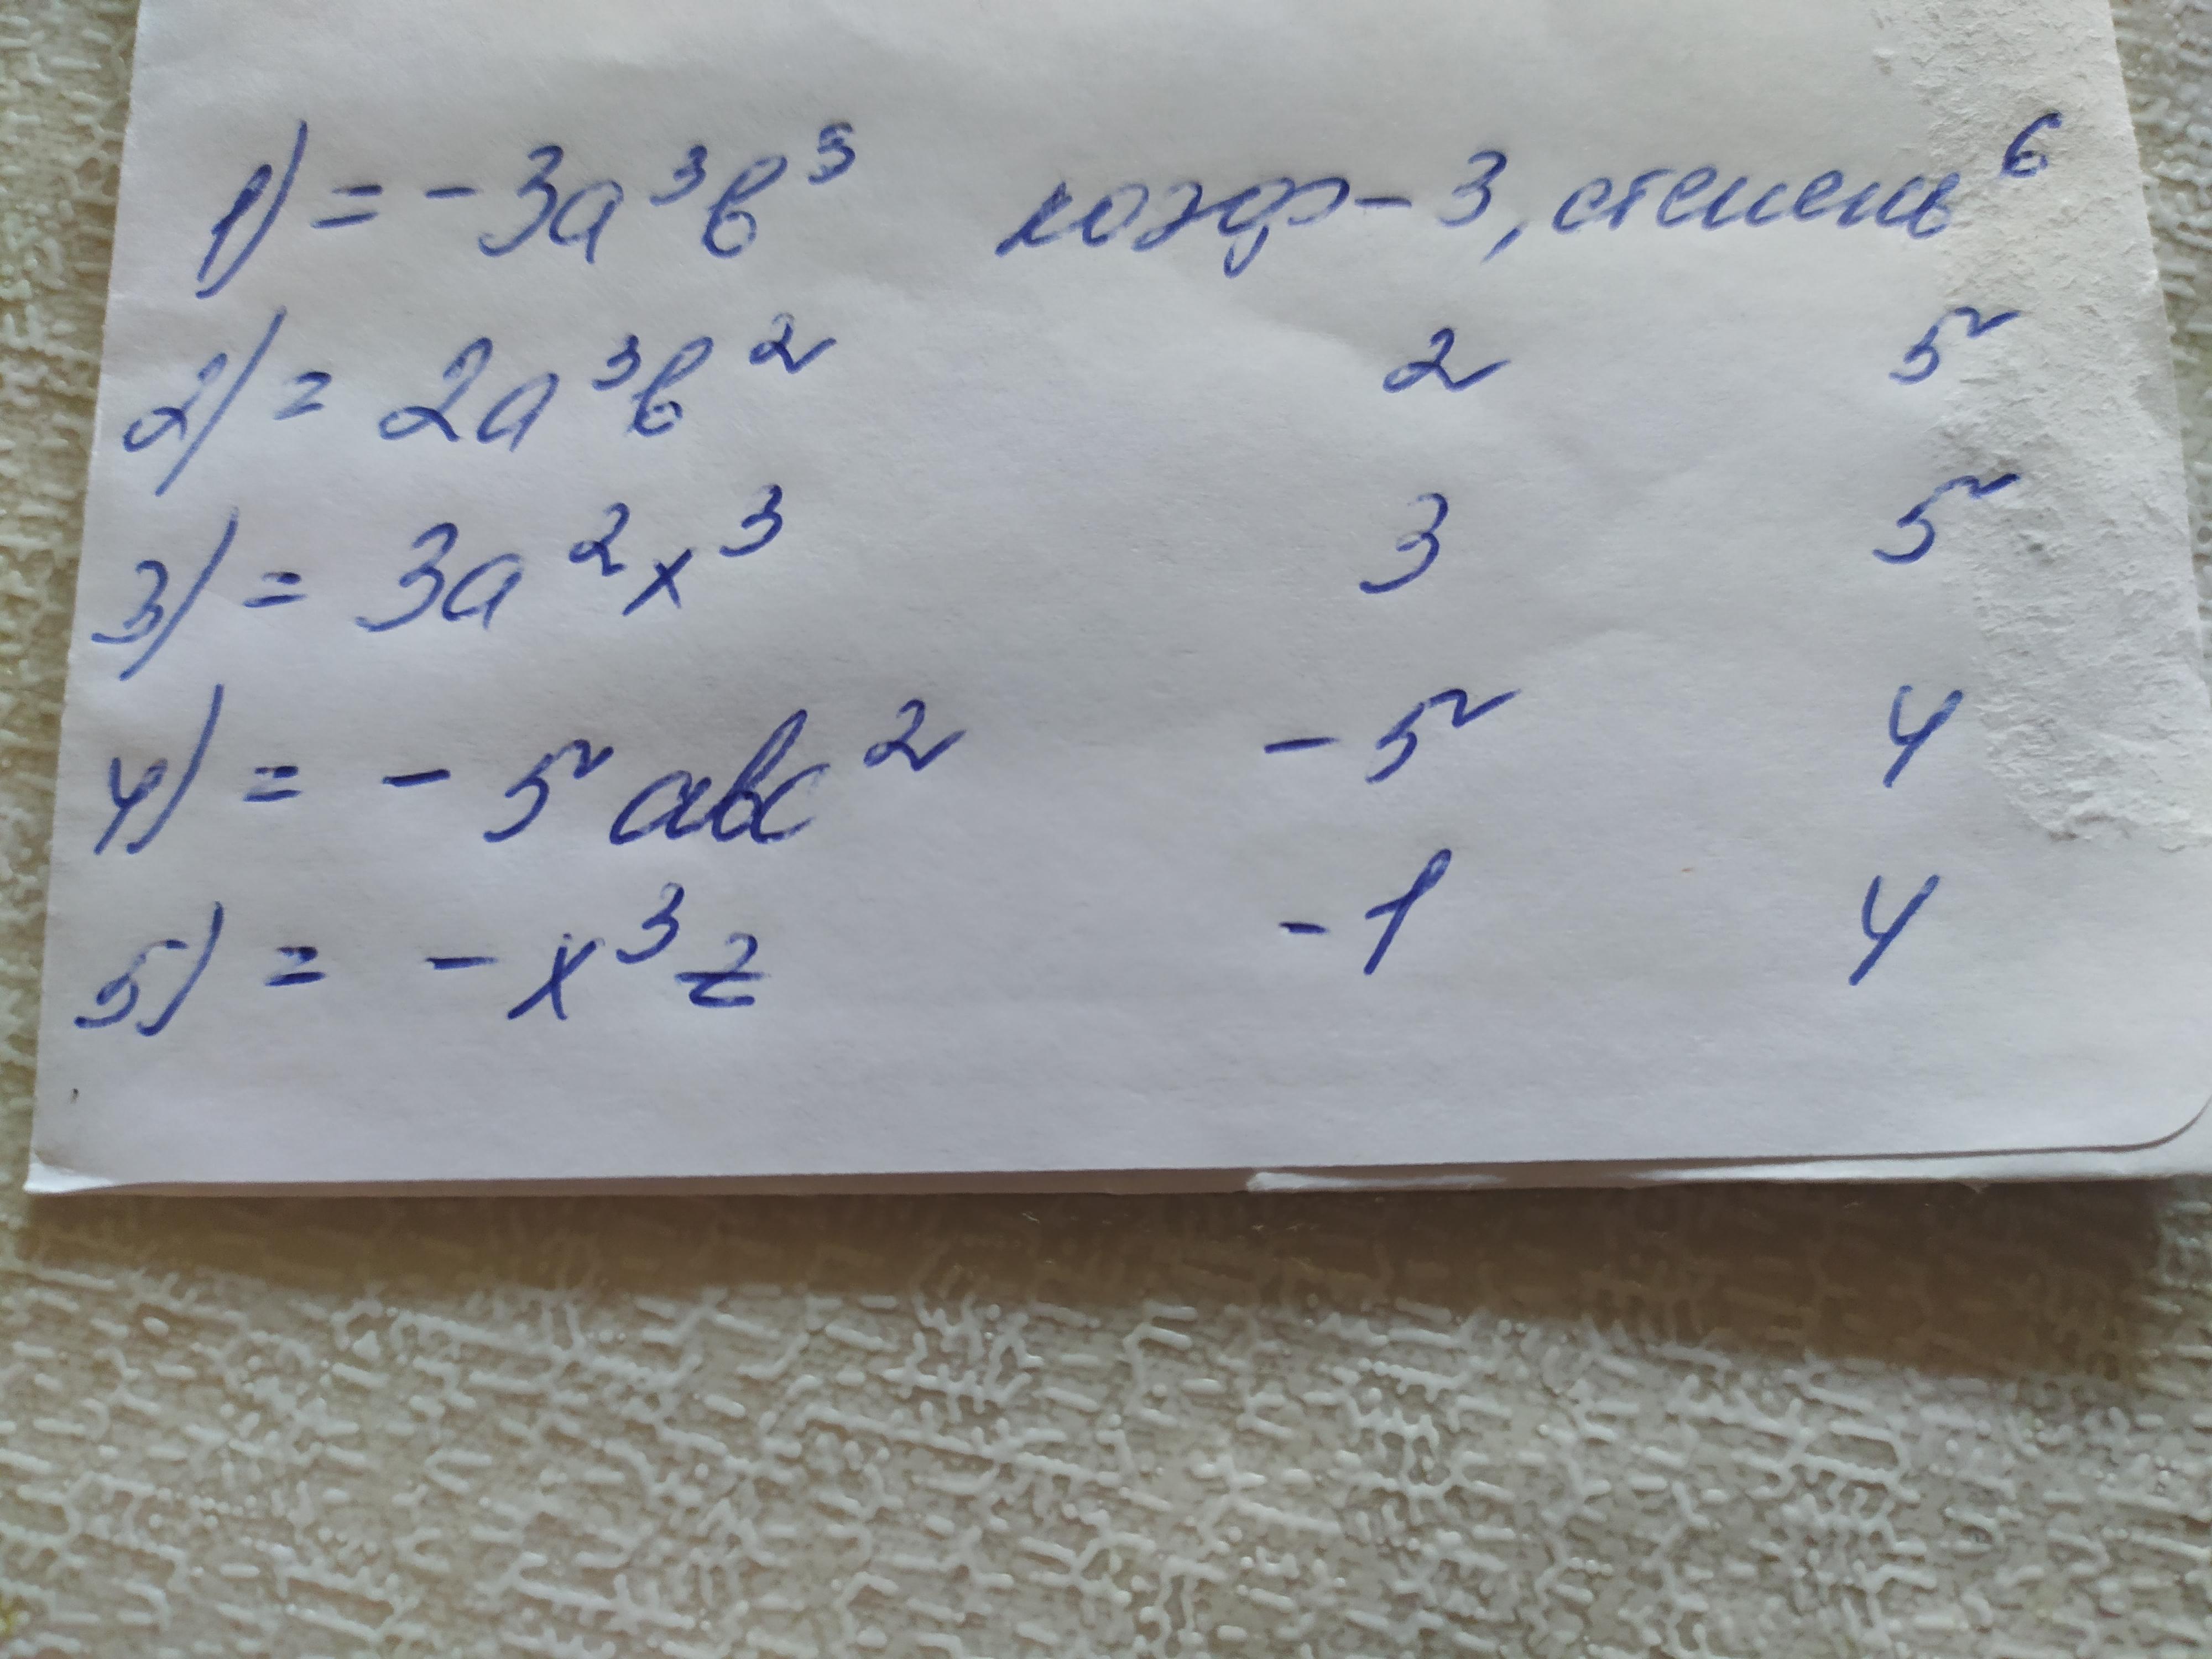 1) = -3a³b³ коэф -3, степень 6
2) = 2a³b² 2 5
3) = 3a²x³ 3 5
4) = -5abc² -5 4
5) = -x³z -1 4